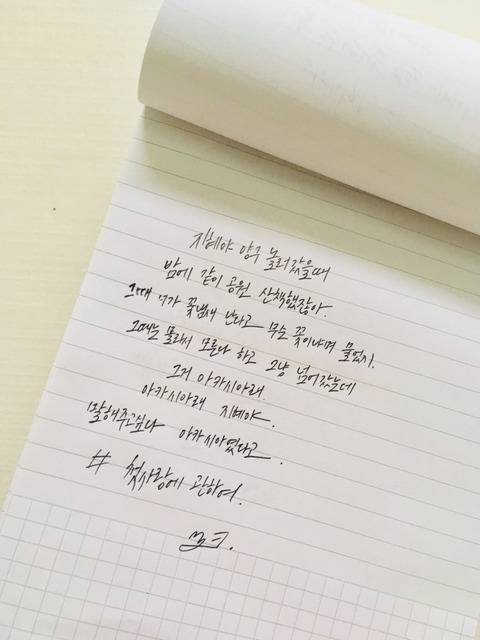 지혜야 양주 놀러갔을때
밤에 같이 공원 산책했잖아.
그때 너가 꽃냄새 난다고 무슨 꽃이냐며 물었지.
그때는 몰라서 모른다 하고 그냥 넘어갔는데
그거 아카시아래.
아카시아래 지혜야.
말해주고싶다 아카시아였다고.
# 첫사랑에 관하여.